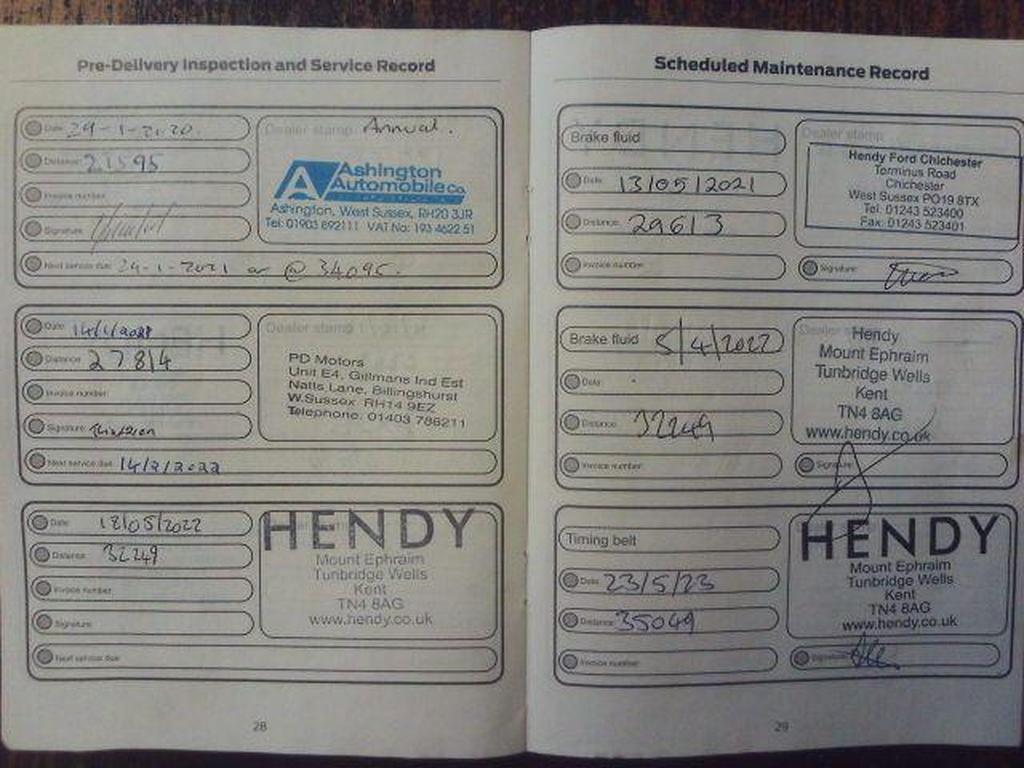 Pre-Delivery Inspection and Service Record
Date: 29-1-2020.
Distance: 21595
Invoice number:
Signature:
Dealer stamp Annual.
Ashington
Automobile Co.
Ashington, West Sussex, RH20 3JR
Tel: 01903 892111 VAT No: 193 4622 51
Next service due: 29-1-2021 or @ 34095.
Date: 14/1/2021
Distance: 27814
Invoice number:
Signature:
Dealer stamp
PD Motors
Unit E4, Gillmans Ind Est
Natts Lane, Billingshurst
W.Sussex RH14 9EZ
Telephone: 01403 786211
Next service due: 14/2/2022
Date: 18/05/2022
Distance: 32249
Invoice number:
Signature:
HENDY
Mount Ephraim
Tunbridge Wells
Kent
TN4 8AG
www.hendy.co.uk
Next service due:
28
Scheduled Maintenance Record
Brake fluid
Date: 13/05/2021
Distance: 29613
Invoice number:
Dealer stamp
Hendy Ford Chichester
Terminus Road
Chichester
West Sussex PO19 8TX
Tel: 01243 523400
Fax: 01243 523401
Signature:
Brake fluid 5/4/2022
Date:
Distance: 32249
Invoice number:
Dealer
Hendy
Mount Ephraim
Tunbridge Wells
Kent
TN4 8AG
www.hendy.co.uk
Signature:
Timing belt
Date: 23/5/23
Distance: 35049
Invoice number:
HENDY
Mount Ephraim
Tunbridge Wells
Kent
TN4 8AG
www.hendy.co.uk
Signature:
29